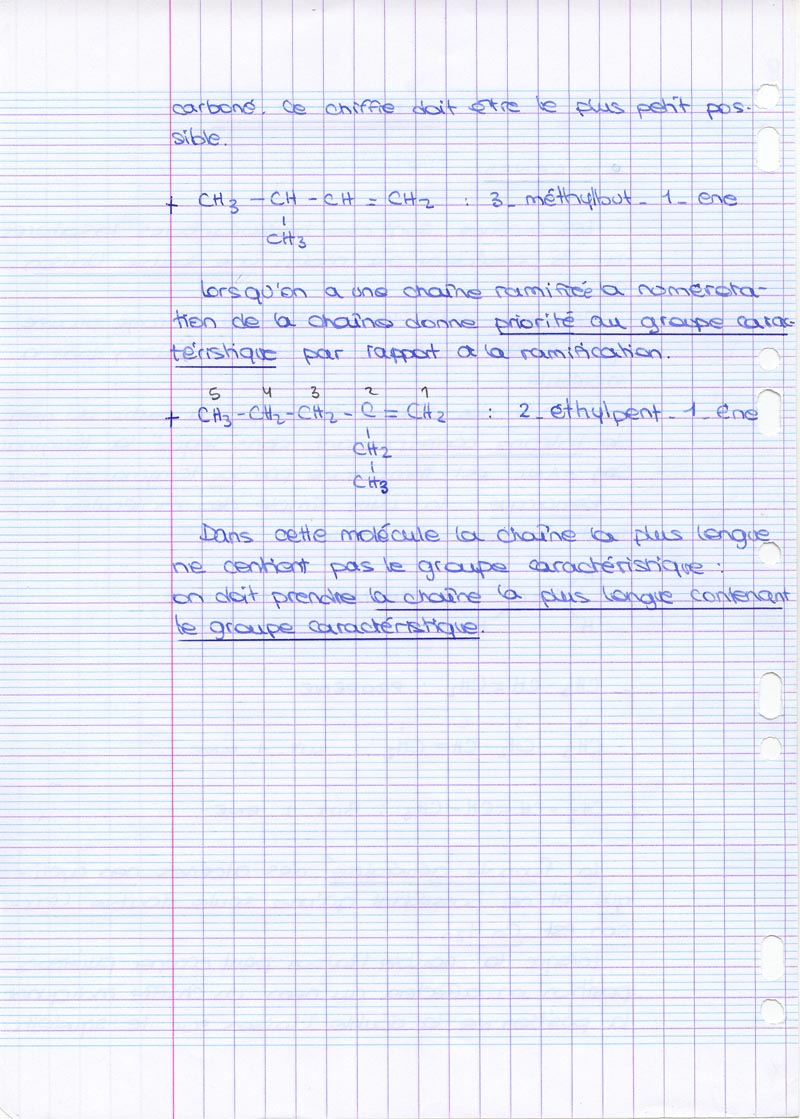 carboné. Ce chiffre doit être le plus petit pos-
sible.
+ CH3 - CH - CH = CH2 : 3_ méthylbut_ 1_ ène
CH3
Lorsqu'on a une chaîne ramifiée la numérota-
tion de la chaîne donne priorité au groupe carac-
téristique par rapport à la ramification.
5 4 3 2 1
+ CH3 - CH2 - CH2 - C = CH2 : 2_ éthylpent_ 1_ ène
CH2
CH3
Dans cette molécule la chaîne la plus longue
ne contient pas le groupe caractéristique :
on doit prendre la chaîne la plus longue contenant
le groupe caractéristique.